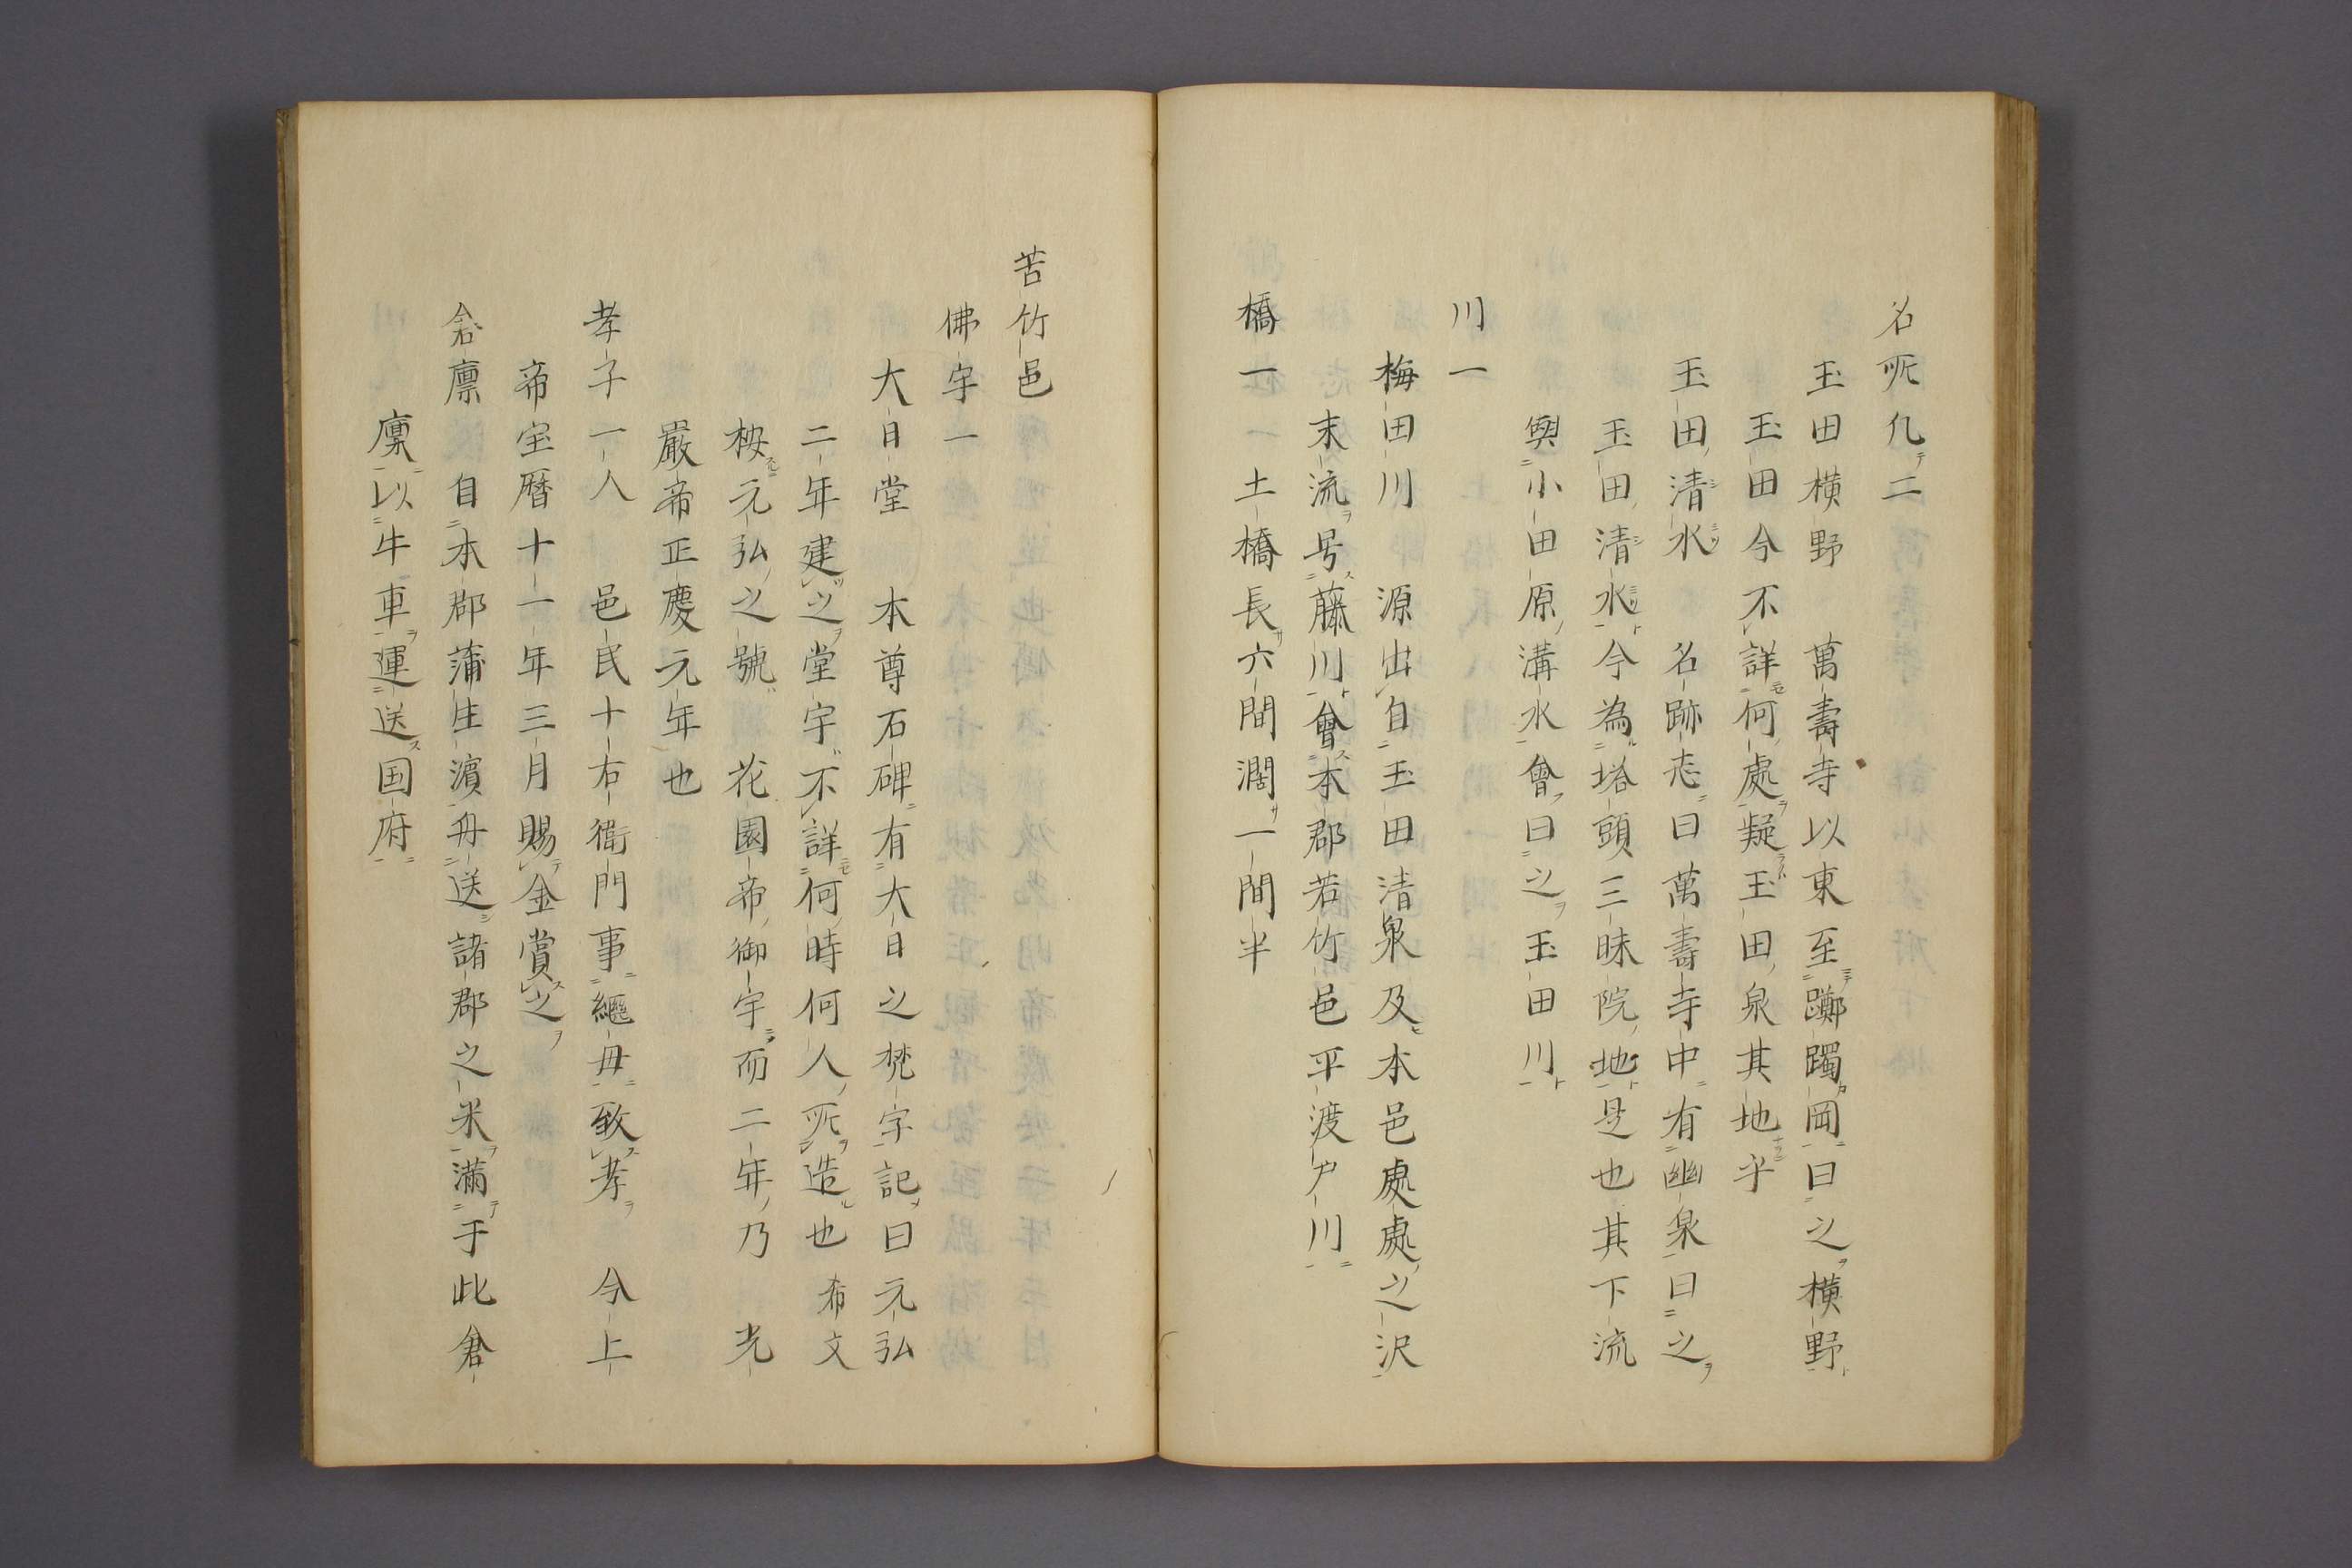 名所凢二
玉田横野　萬壽寺以東至躑躅岡曰之横野
玉田今不詳何處疑玉田泉其地乎
玉田清水　名跡志曰萬壽寺中有幽泉曰之
玉田清水今為塔頭三昧院地是也其下流
與小田原溝水會曰之玉田川
川一
梅田川　源出自玉田清泉及本邑處處之沢
末流号藤川會本郡若竹邑平渡戸川
橋一　土橋長六間濶一間半
苦竹邑
佛宇一
大日堂　本尊石碑有大日之梵字記曰元弘
二年建之堂宇不詳何時何人所造也　希文
桉元弘之號　花園帝御宇而二年乃　光
嚴帝正慶元年也
孝子一人　邑民十右衛門事繼母致孝　今上
帝宝暦十一年三月賜金賞之
倉廪　自本郡蒲生濵舟送諸郡之米満于此倉
廪以牛車運送国府